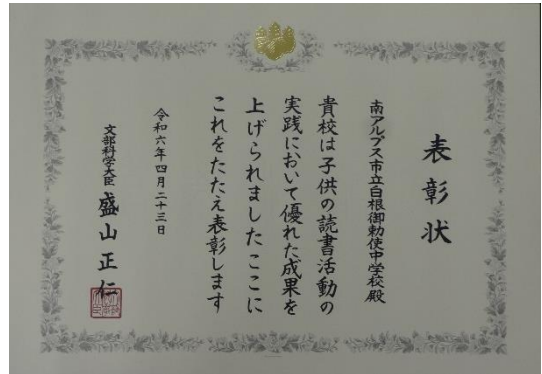 表彰状
南アルプス市立白根御勅使中学校殿
貴校は子供の読書活動の
実践において優れた成果を
上げられましたここに
これをたたえ表彰します
令和六年四月二十三日
文部科学大臣 盛山正仁